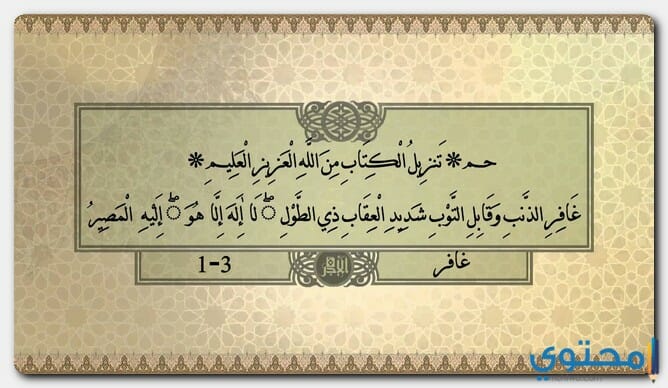 حم * تَنزِيلُ الْكِتَابِ مِنَ اللَّهِ الْعَزِيزِ الْعَلِيمِ *
غَافِرِ الذَّنبِ وَقَابِلِ التَّوْبِ شَدِيدِ الْعِقَابِ ذِي الطَّوْلِ ۖ لَا إِلَٰهَ إِلَّا هُوَ ۖ إِلَيْهِ الْمَصِيرُ
غافر 1-3
محتوي